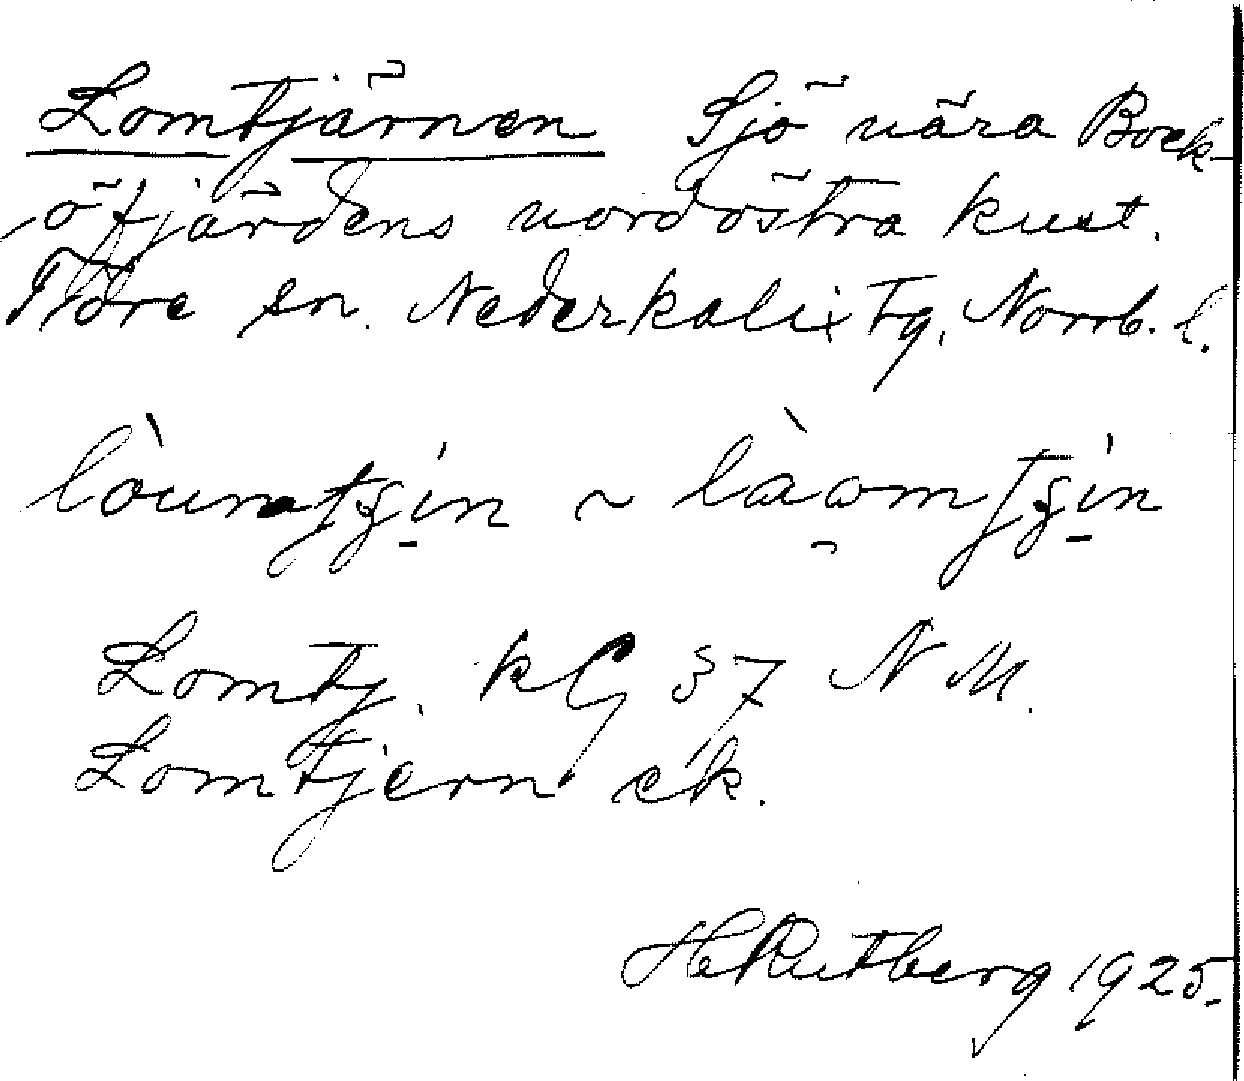 Lomtjärnen Sjö nära Bock-
öfjärdens nordöstra kust.
Töre sn. Nederkalix tg, Norrb. l.
Lomtj. kG 37 N M.
Lomtjern ek.
H Rutberg 1925.